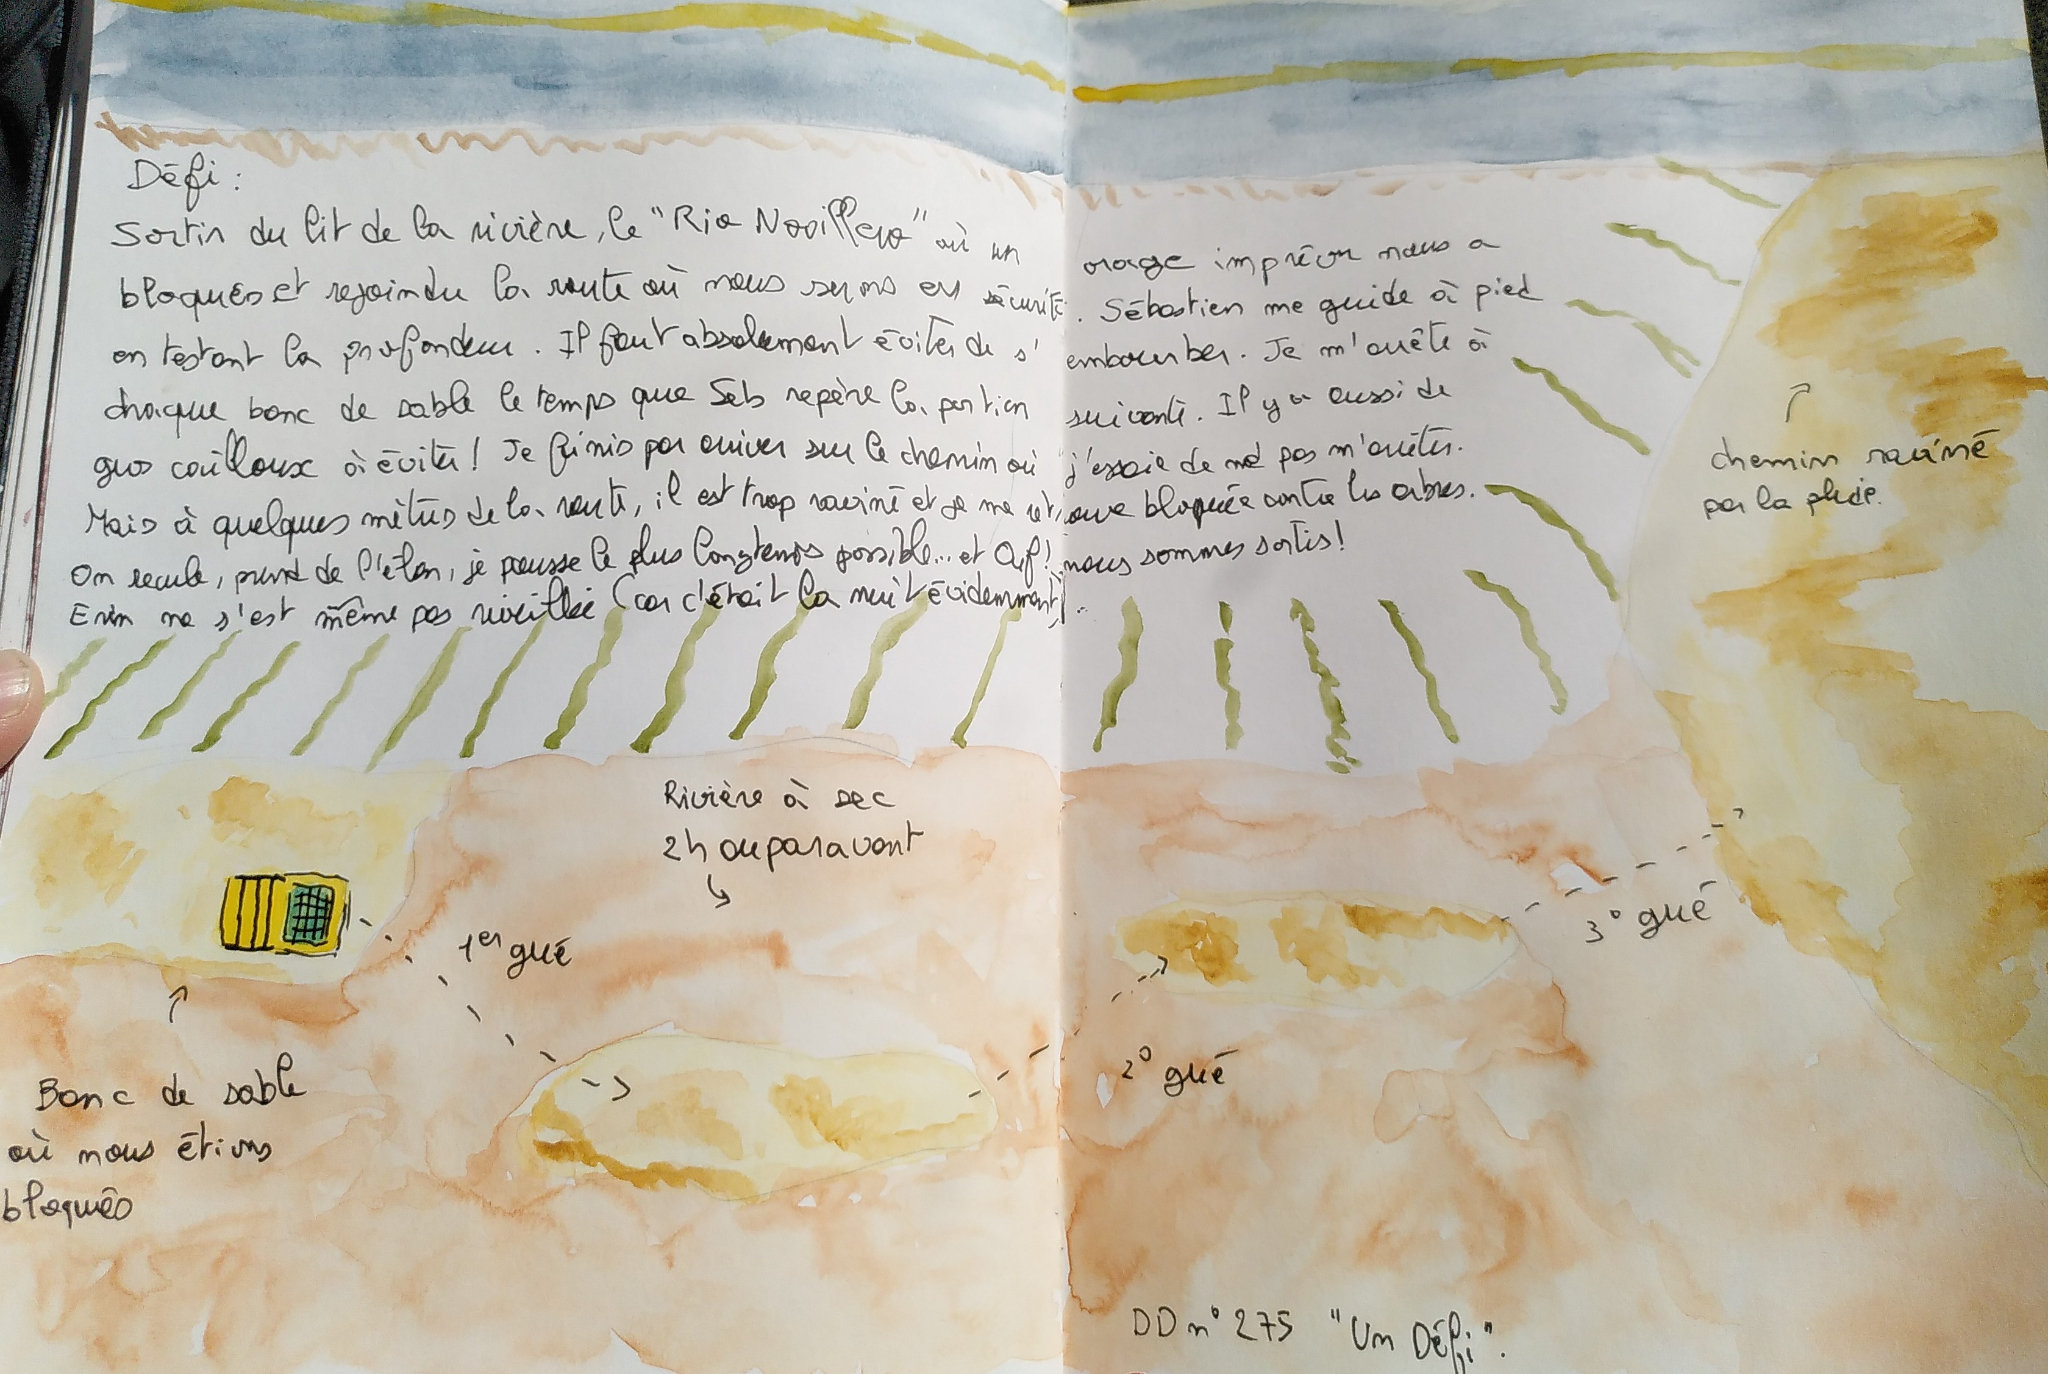 Défi :
Sortir du lit de la rivière, le "Rio Novillero" où un orage imprévu nous a
bloqués et rejoindre la route où nous serons en sécurité. Sébastien me guide à pied
en testant la profondeur. Il faut absolument éviter de s'embourber. Je m'arrête à
chaque banc de sable le temps que Seb repère la portion suivante. Il y a aussi de
gros cailloux à éviter ! Je finis par arriver sur le chemin où j'essaie de ne pas m'arrêter.
Mais à quelques mètres de la route, il est trop raviné et je me retrouve bloquée contre les arbres.
On recule, prend de l'élan, je pousse le plus longtemps possible... et Ouf ! nous sommes sortis !
Erin ne s'est même pas réveillée (car c'était la nuit évidemment).
chemin raviné
par la pluie.
Rivière à sec
2h auparavant
1er gué
3° gué
2° gué
Banc de sable
où nous étions
bloqués
DD n° 275 "Un Défi".